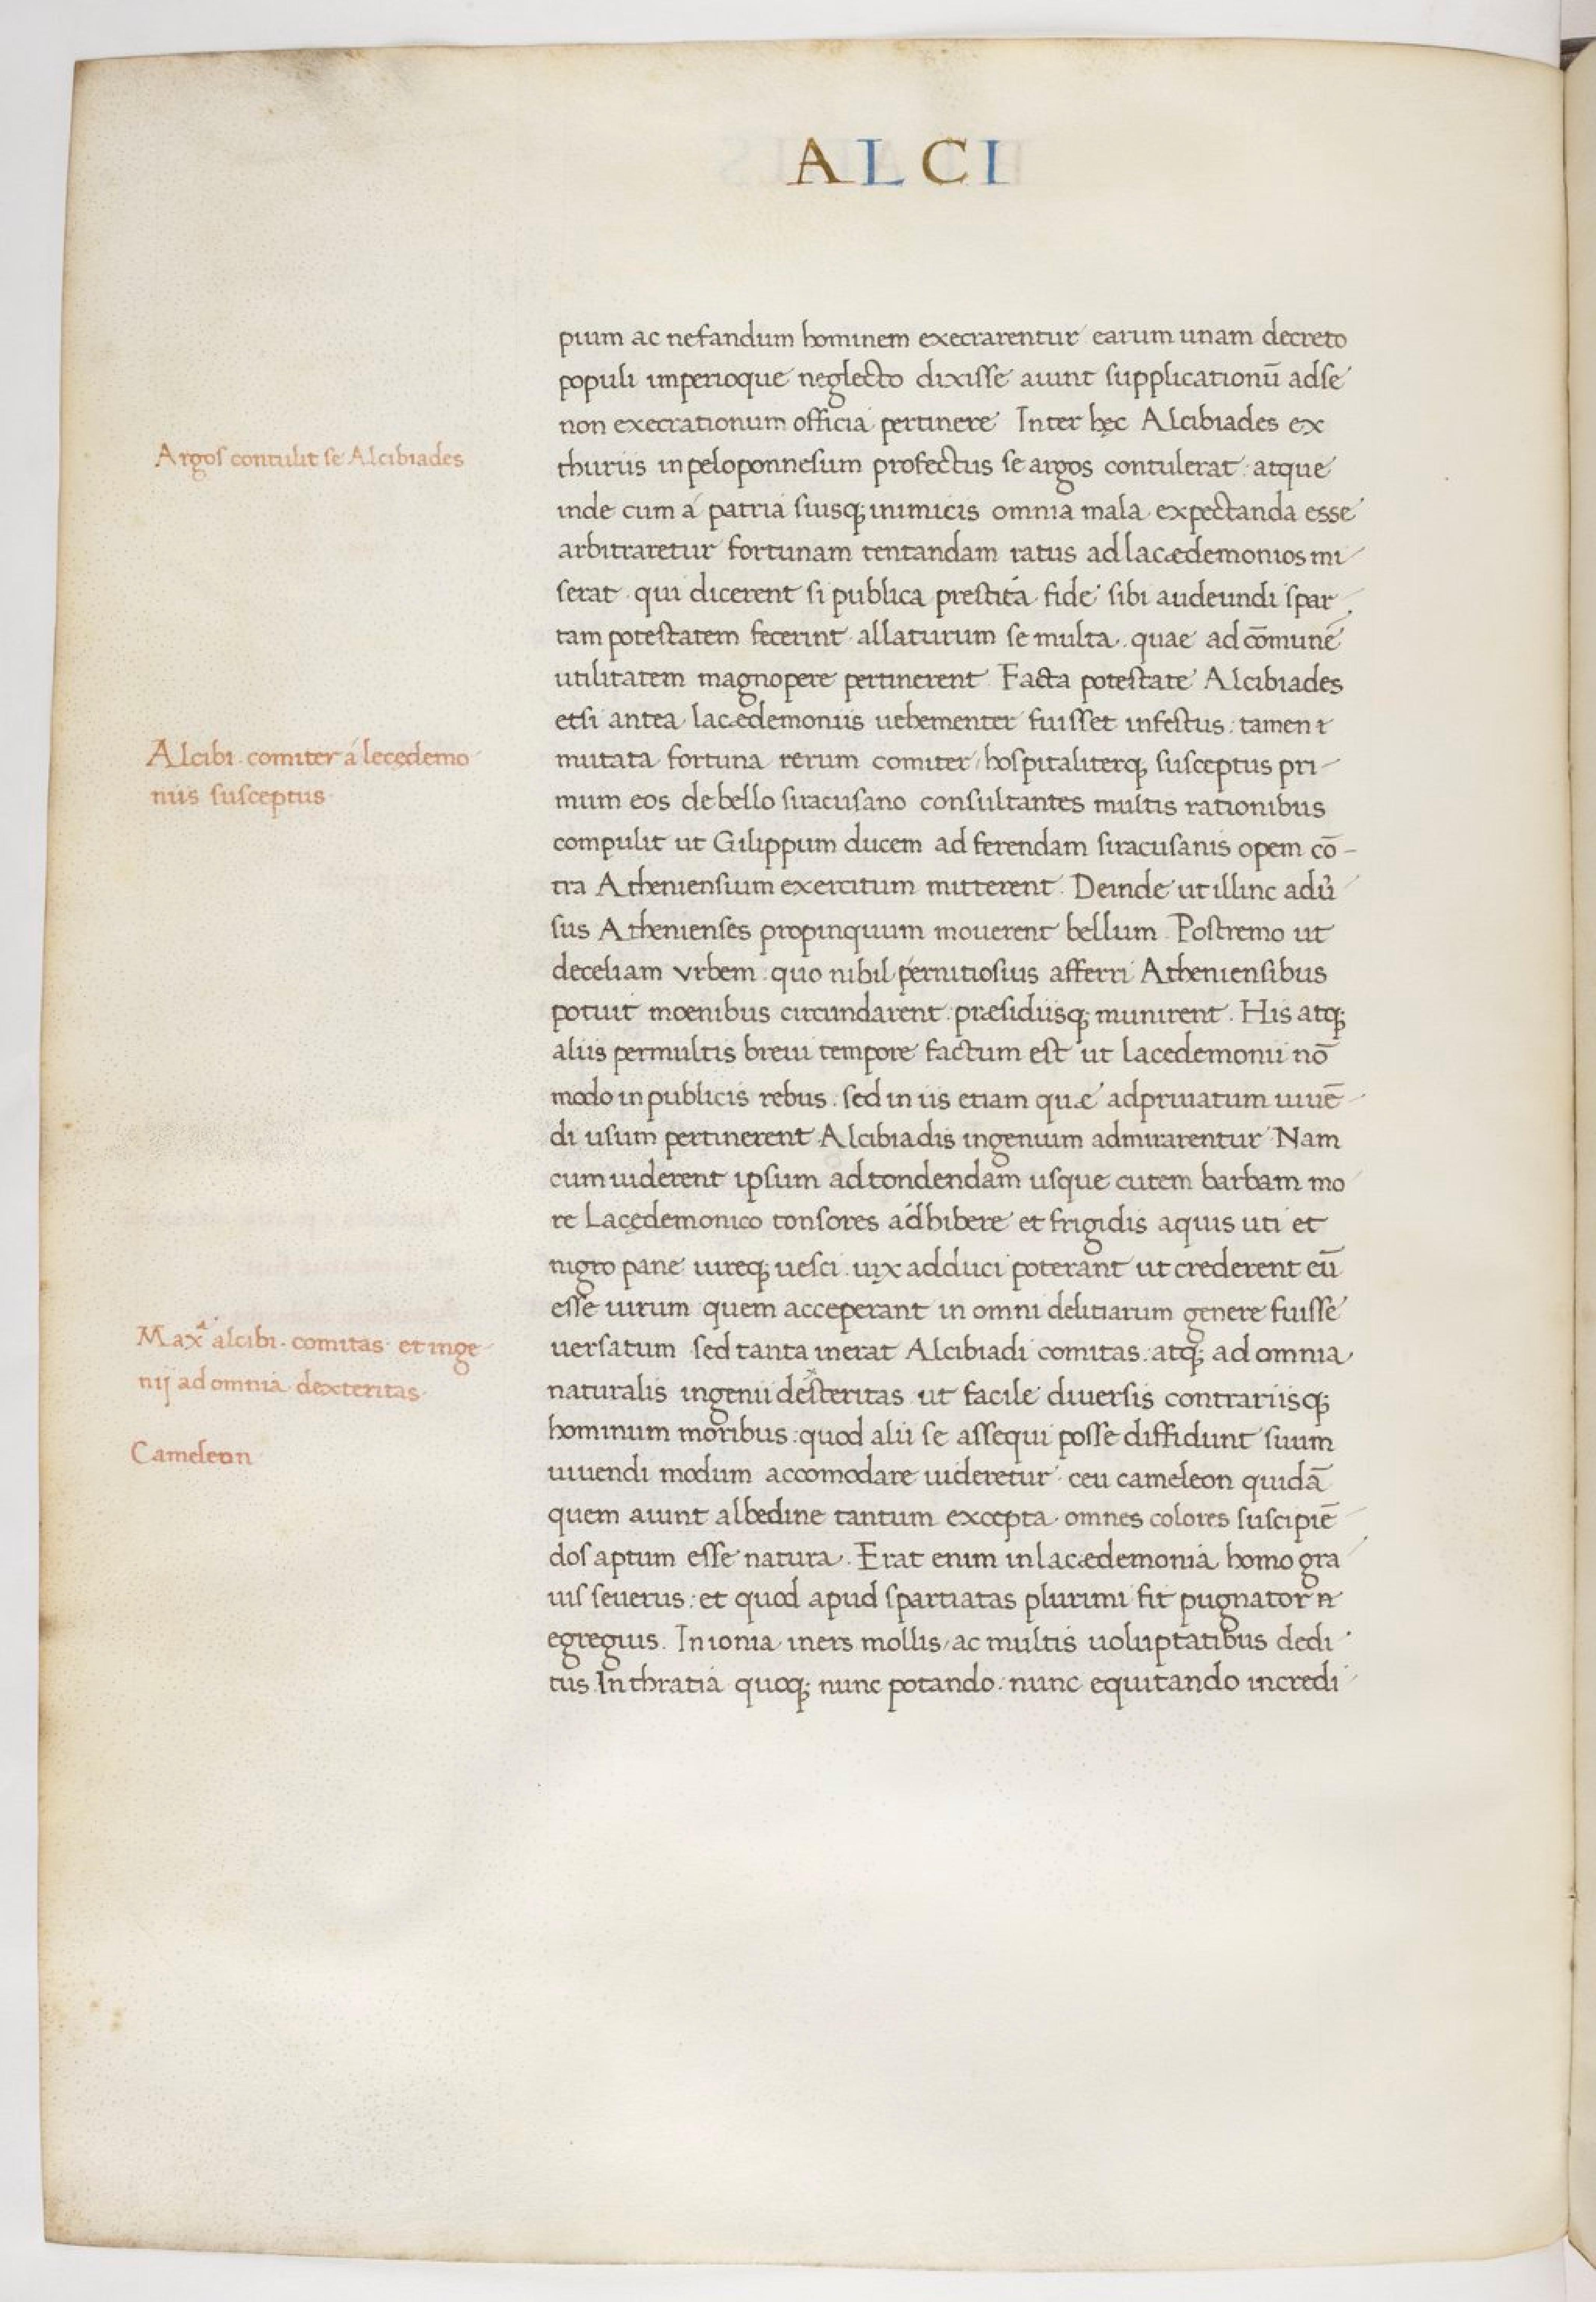 ALCI
pium ac nefandum hominem execrarentur earum unam decreto
populi imperioque neglecto dixisse aiunt supplicationū adse
non execrationum officia pertinere Inter hęc Alcibiades ex
Argos contulit se Alcibiades
thuriis in peloponnesum profectus se argos contulerat : atque
inde cum á patria suisq; inimicis omnia mala expectanda esse
arbitraretur fortunam tentandam ratus ad lacædemonios mi-
serat . qui dicerent si publica prestita fide sibi audeundi spar-
tam potestatem fecerint allaturum se multa . quae ad cōmunē
utilitatem magnopere pertinerent . Facta potestate Alcibiades
etsi antea lacædemoniis uehementer fuisset infestus : tamen
Alcibi . comiter á lecędemo-
niis susceptus
mutata fortuna rerum comiter / hospitaliterq; susceptus pri-
mum eos de bello siracusano consultantes multis rationibus
compulit ut Gilippum ducem ad ferendam siracusanis opem cō-
tra Atheniensium exercitum mitterent . Deinde ut illinc adú-
sus Athenienses propinquum mouerent bellum . Postremo ut
deceliam vrbem . quo nihil pernitiosius afferri Atheniensibus
potuit moenibus circundarent . præsidiisq; munirent . His atq;
aliis permultis breui tempore factum est ut lacedemonii nō
modo in publicis rebus . sed in iis etiam quæ ad priuatum uiuē-
di usum pertinerent Alcibiadis ingenium admirarentur Nam
cum uiderent ipsum ad tondendam usque cutem barbam mo-
re Lacędemonico tonsores adhibere et frigidis aquis uti et
nigro pane iureq; uesci . uix adduci poterant ut crederent eū
esse uirum quem acceperant in omni delitiarum genere fuisse
Maxᵃ alcibi . comitas et inge-
nij ad omnia dexteritas
uersatum sed tanta inerat Alcibiadi comitas . atq; ad omnia
naturalis ingenii desteritas ut facile diuersis contrariisq;
hominum moribus : quod alii se assequi posse diffidunt suum
Cameleon
uiuendi modum accomodare uideretur ceu cameleon quidā
quem aiunt albedine tantum excepta omnes colores suscipiē-
dos aptum esse natura . Erat enim in lacædemonia homo gra-
uis seuerus : et quod apud spartiatas plurimi fit pugnator
egregius . In ionia iners mollis / ac multis uoluptatibus dedi-
tus In thratia quoq; nunc potando : nunc equitando incredi-